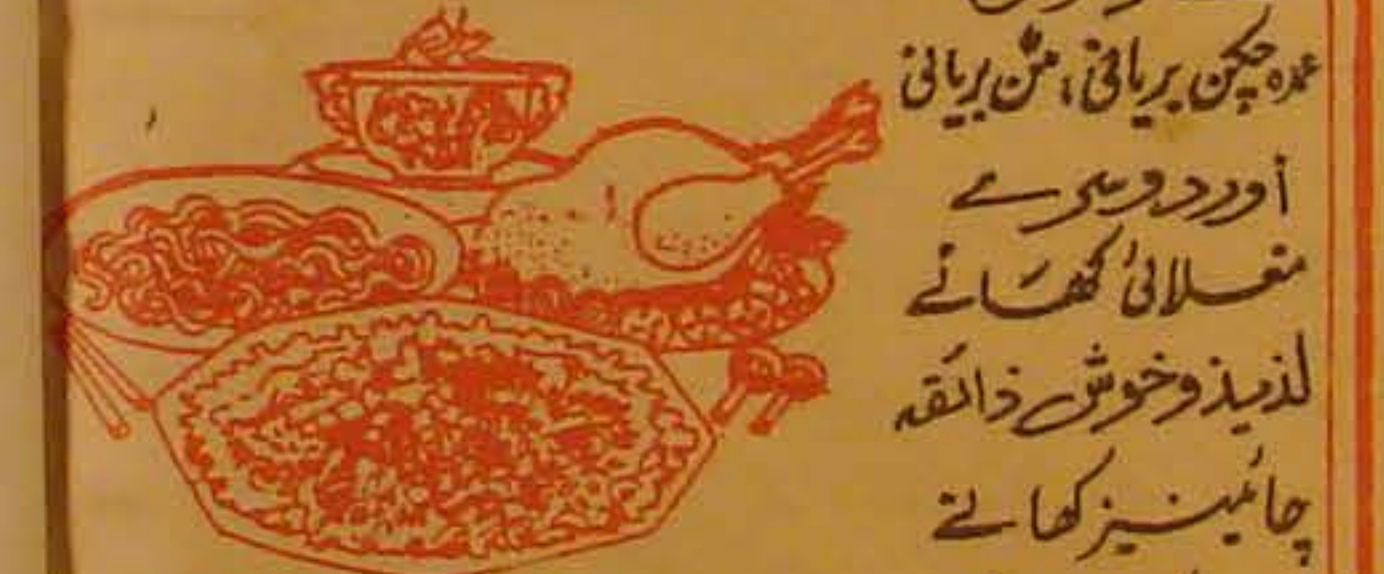 عمدہ چکن بریانی، مٹن بریانی
اور دوسرے
مغلائی کھانے
لذیذ و خوش ذائقہ
چائینیز کھانے